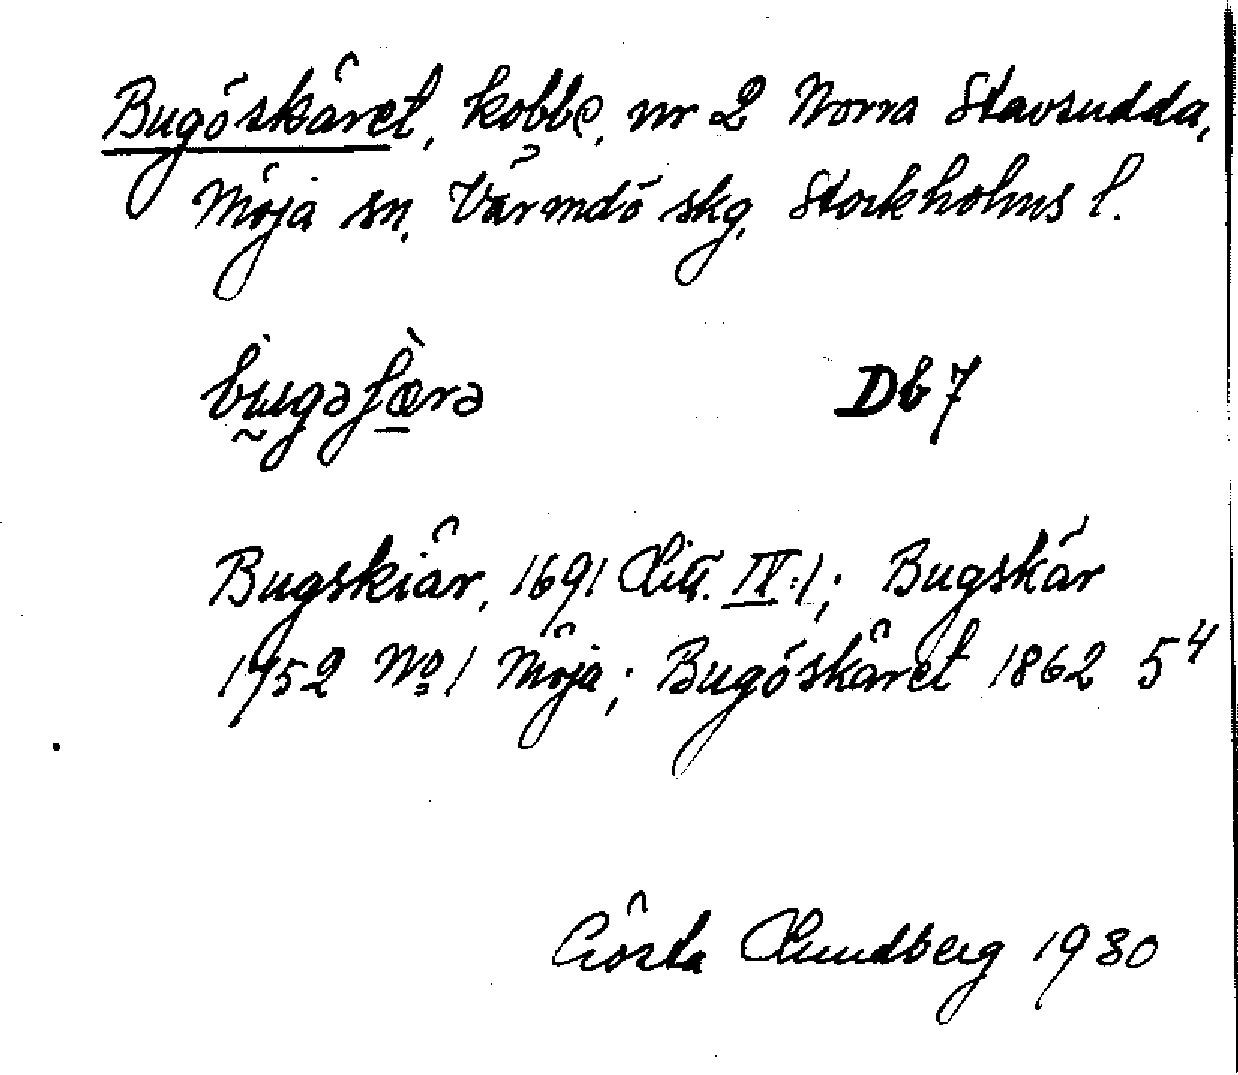 Bugöskäret, kobbe, nr 2 Norra Stavsudda,
Möja sn, Värmdö skg, Stockholms l.
bugəʃærə Db 7
Bugskiär, 1691 Litt. IV:1; Bugskär
1752 No 1 Möja; Bugöskäret 1862 5⁴
Gösta Lundberg 1930